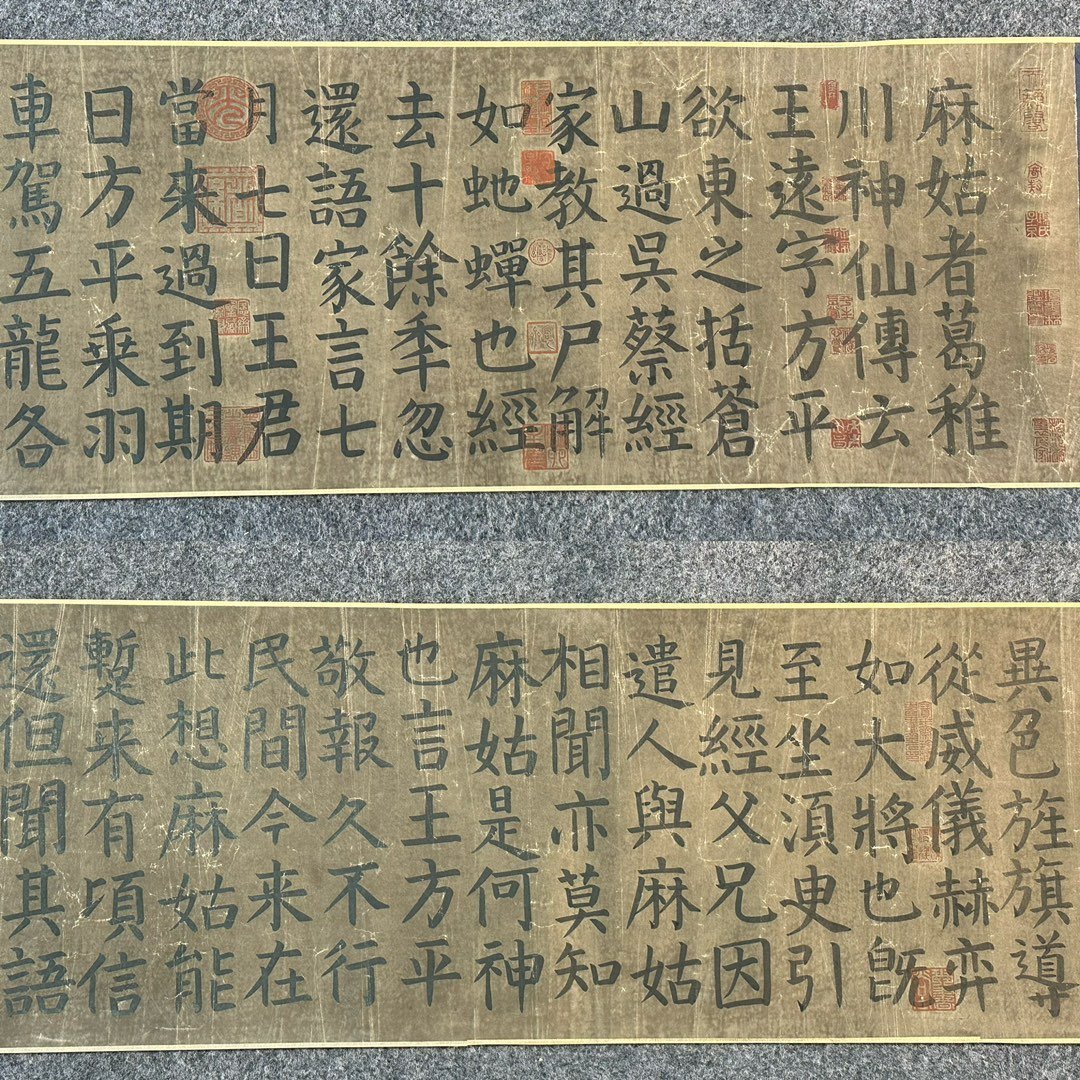 麻姑者葛稚
川神仙傳云
王遠字方平
欲東之括蒼
山過吳蔡經
家教其尸解
如虵蟬也經
去十餘秊忽
還語家言七
月七日王君
當來過到期
日方平乗羽
車駕五龍各
異色旌旗導
從威儀赫弈
如大將也旣
至坐湏臾引
見經父兄因
遣人與麻姑
相聞亦莫知
麻姑是何神
也言王方平
敬報久不行
民間今来在
此想麻姑能
蹔来有頃信
還但聞其語